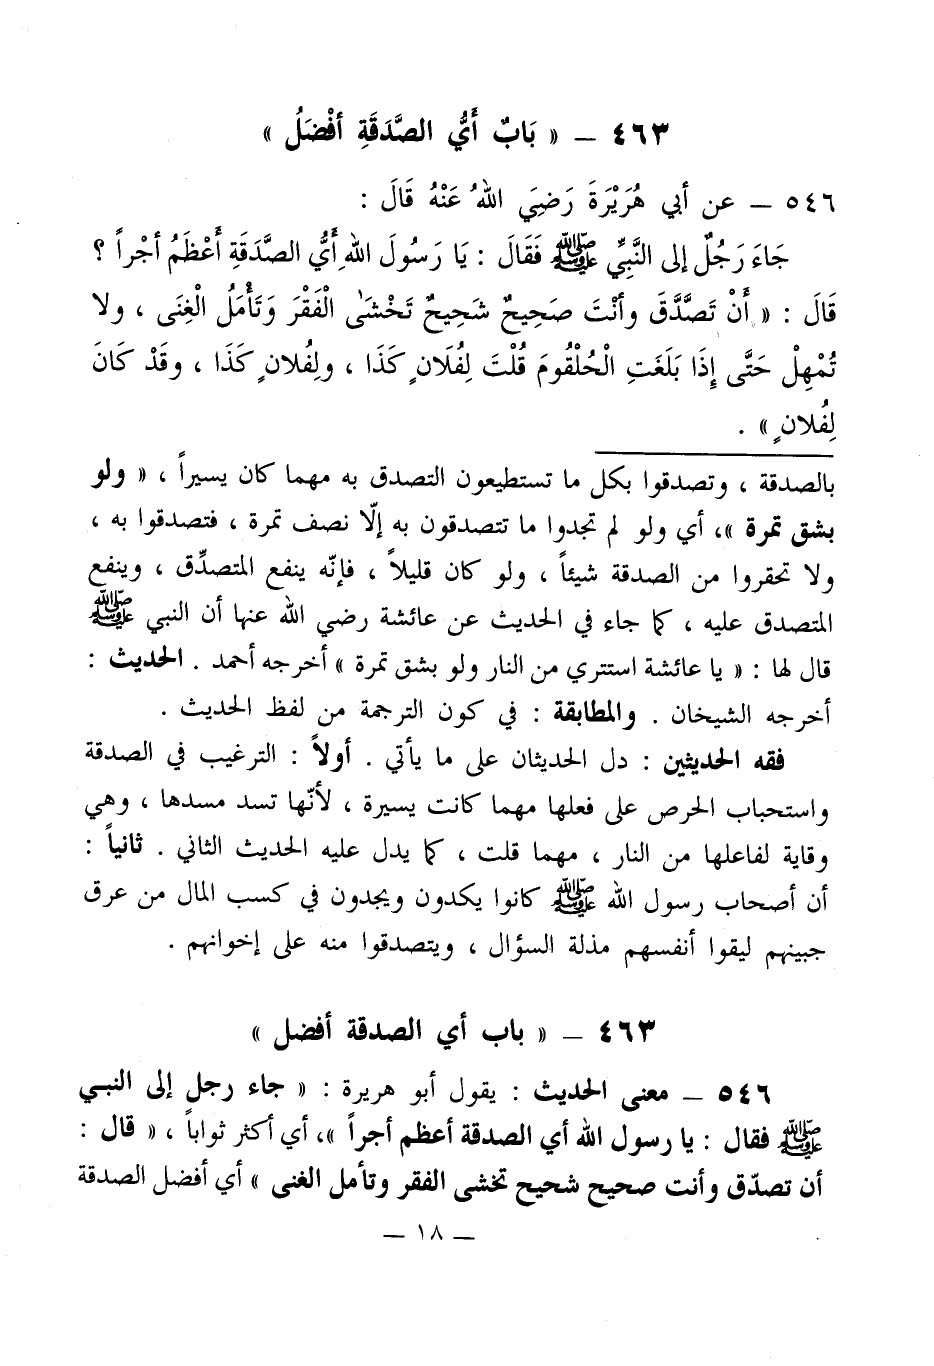 ٤٦٣ – « بَابٌ أَيُّ الصَّدَقَةِ أفْضَلُ »
٥٤٦ – عن أبي هُرَيْرَةَ رَضِيَ اللهُ عَنْهُ قَالَ :
جَاءَ رَجُلٌ إلى النَّبِيِّ ﷺ فَقَالَ : يَا رَسُولَ اللهِ أَيُّ الصَّدَقَةِ أَعْظَمُ أجْراً ؟
قَالَ : « أَنْ تَصَّدَّقَ وأنْتَ صَحِيحٌ شَحِيحٌ تَخْشَىٰ الْفَقْرَ وَتَأْمَلُ الْغِنَى ، ولا
تُمْهِلْ حَتَّى إِذَا بَلَغَتِ الْحُلْقُومَ قُلْتَ لِفُلَانٍ كَذَا ، ولِفُلانٍ كَذَا ، وقَدْ كَانَ
لِفُلانٍ » .
بالصدقة ، وتصدقوا بكل ما تستطيعون التصدق به مهما كان يسيراً ، « ولو
بشق تمرة »، أي ولو لم تجدوا ما تتصدقون به إلّا نصف تمرة ، فتصدقوا به ،
ولا تحقروا من الصدقة شيئاً ، ولو كان قليلاً ، فإنّه ينفع المتصدِّق ، وينفع
المتصدق عليه ، كما جاء في الحديث عن عائشة رضي الله عنها أن النبي ﷺ
قال لها : « يا عائشة استتري من النار ولو بشق تمرة » أخرجه أحمد . الحديث :
أخرجه الشيخان . والمطابقة : في كون الترجمة من لفظ الحديث .
فقه الحديثين : دل الحديثان على ما يأتي . أولاً : الترغيب في الصدقة
واستحباب الحرص على فعلها مهما كانت يسيرة ، لأنّها تسد مسدها ، وهي
وقاية لفاعلها من النار ، مهما قلت ، كما يدل عليه الحديث الثاني . ثانياً :
أن أصحاب رسول الله ﷺ كانوا يكدون ويجدون في كسب المال من عرق
جبينهم ليقوا أنفسهم مذلة السؤال ، ويتصدقوا منه على إخوانهم .
٤٦٣ – « باب أي الصدقة أفضل »
٥٤٦ – معنى الحديث : يقول أبو هريرة : « جاء رجل إلى النبي
ﷺ فقال : يا رسول الله أي الصدقة أعظم أجراً »، أي أكثر ثواباً ، « قال :
أن تصدّق وأنت صحيح شحيح تخشى الفقر وتأمل الغنى » أي أفضل الصدقة
– ١٨ –